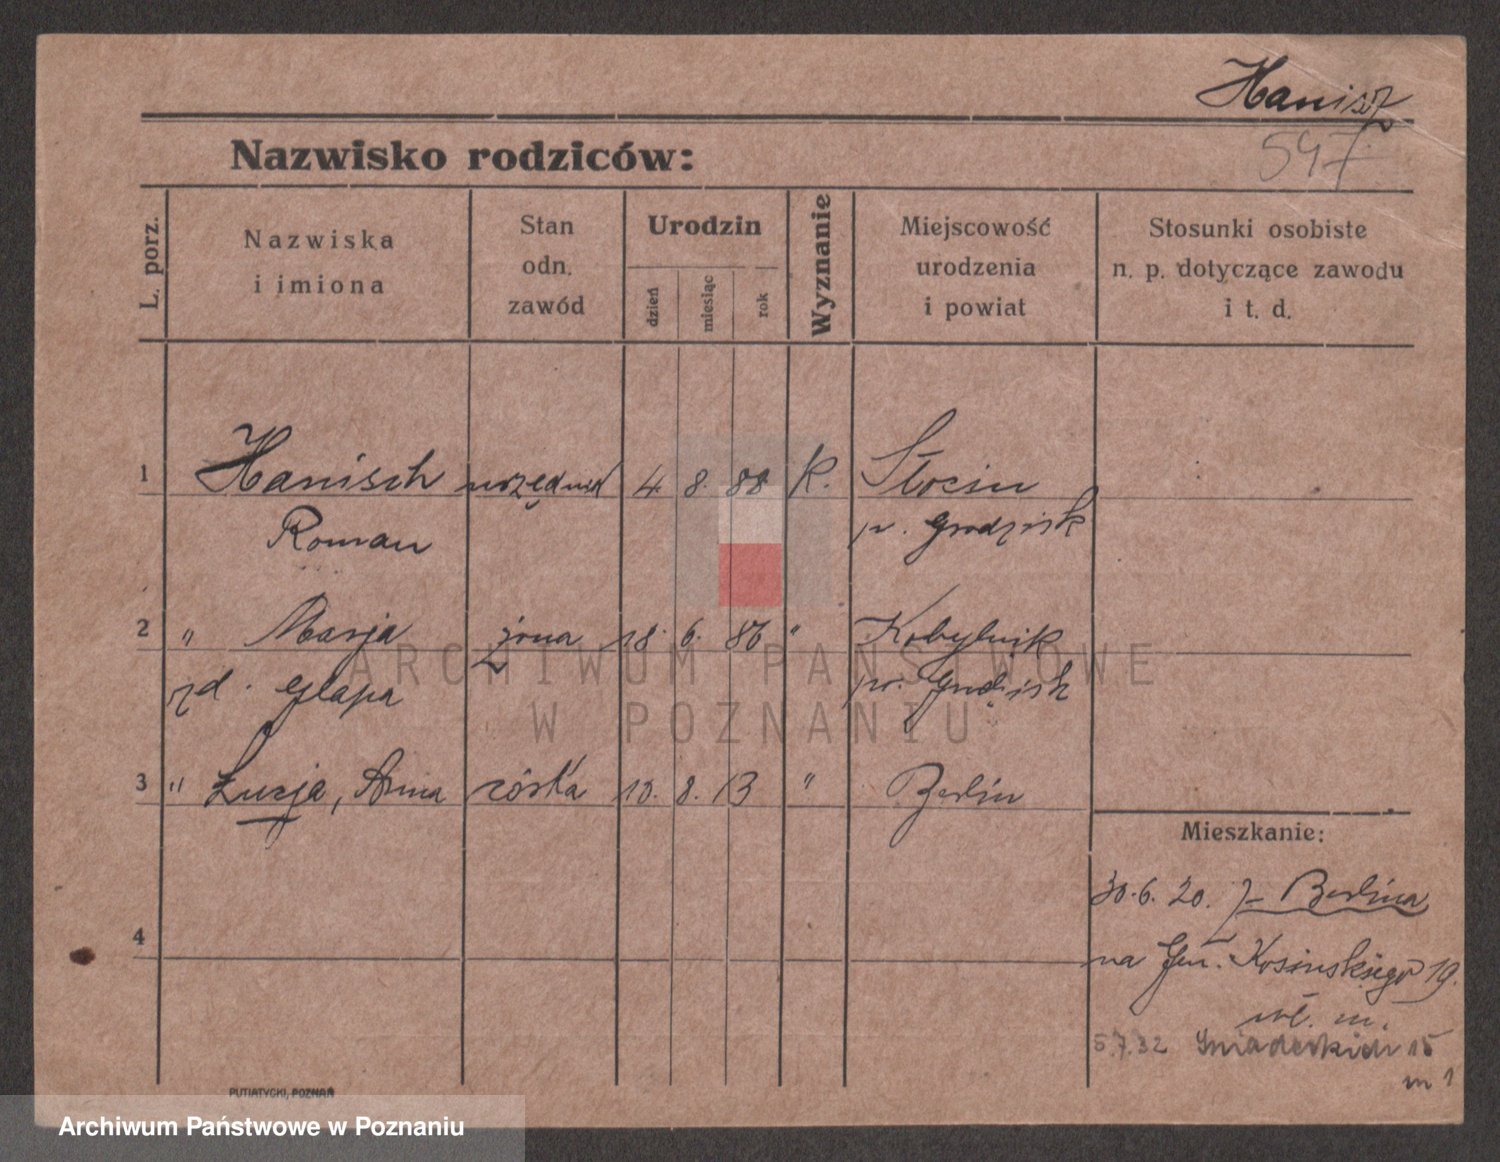 Hanisz
547
Nazwisko rodziców:
L. porz.
Nazwiska
i imiona
Stan
odn.
zawód
Urodzin
dzień
miesiąc
rok
Wyznanie
Miejscowość
urodzenia
i powiat
Stosunki osobiste
n. p. dotyczące zawodu
i t. d.
1 Hanisch urzędnik 4. 8. 88 K. Słocin
Roman p. Grodzisk
2 " Marja żona 18. 6. 86 " Kobylnik
zd. Glapa pow. Grodzisk
3 " Łucja, Anna córka 10. 8. 13 " Berlin
Mieszkanie:
30.6.20. z Berlina
4
na Gen. Kosinskiego 19.
wł. m.
5.7.32 Śniadeckich 15
m 1
PUTIATYCKI, POZNAŃ
ARCHIWUM PAŃSTWOWE
W POZNANIU
Archiwum Państwowe w Poznaniu